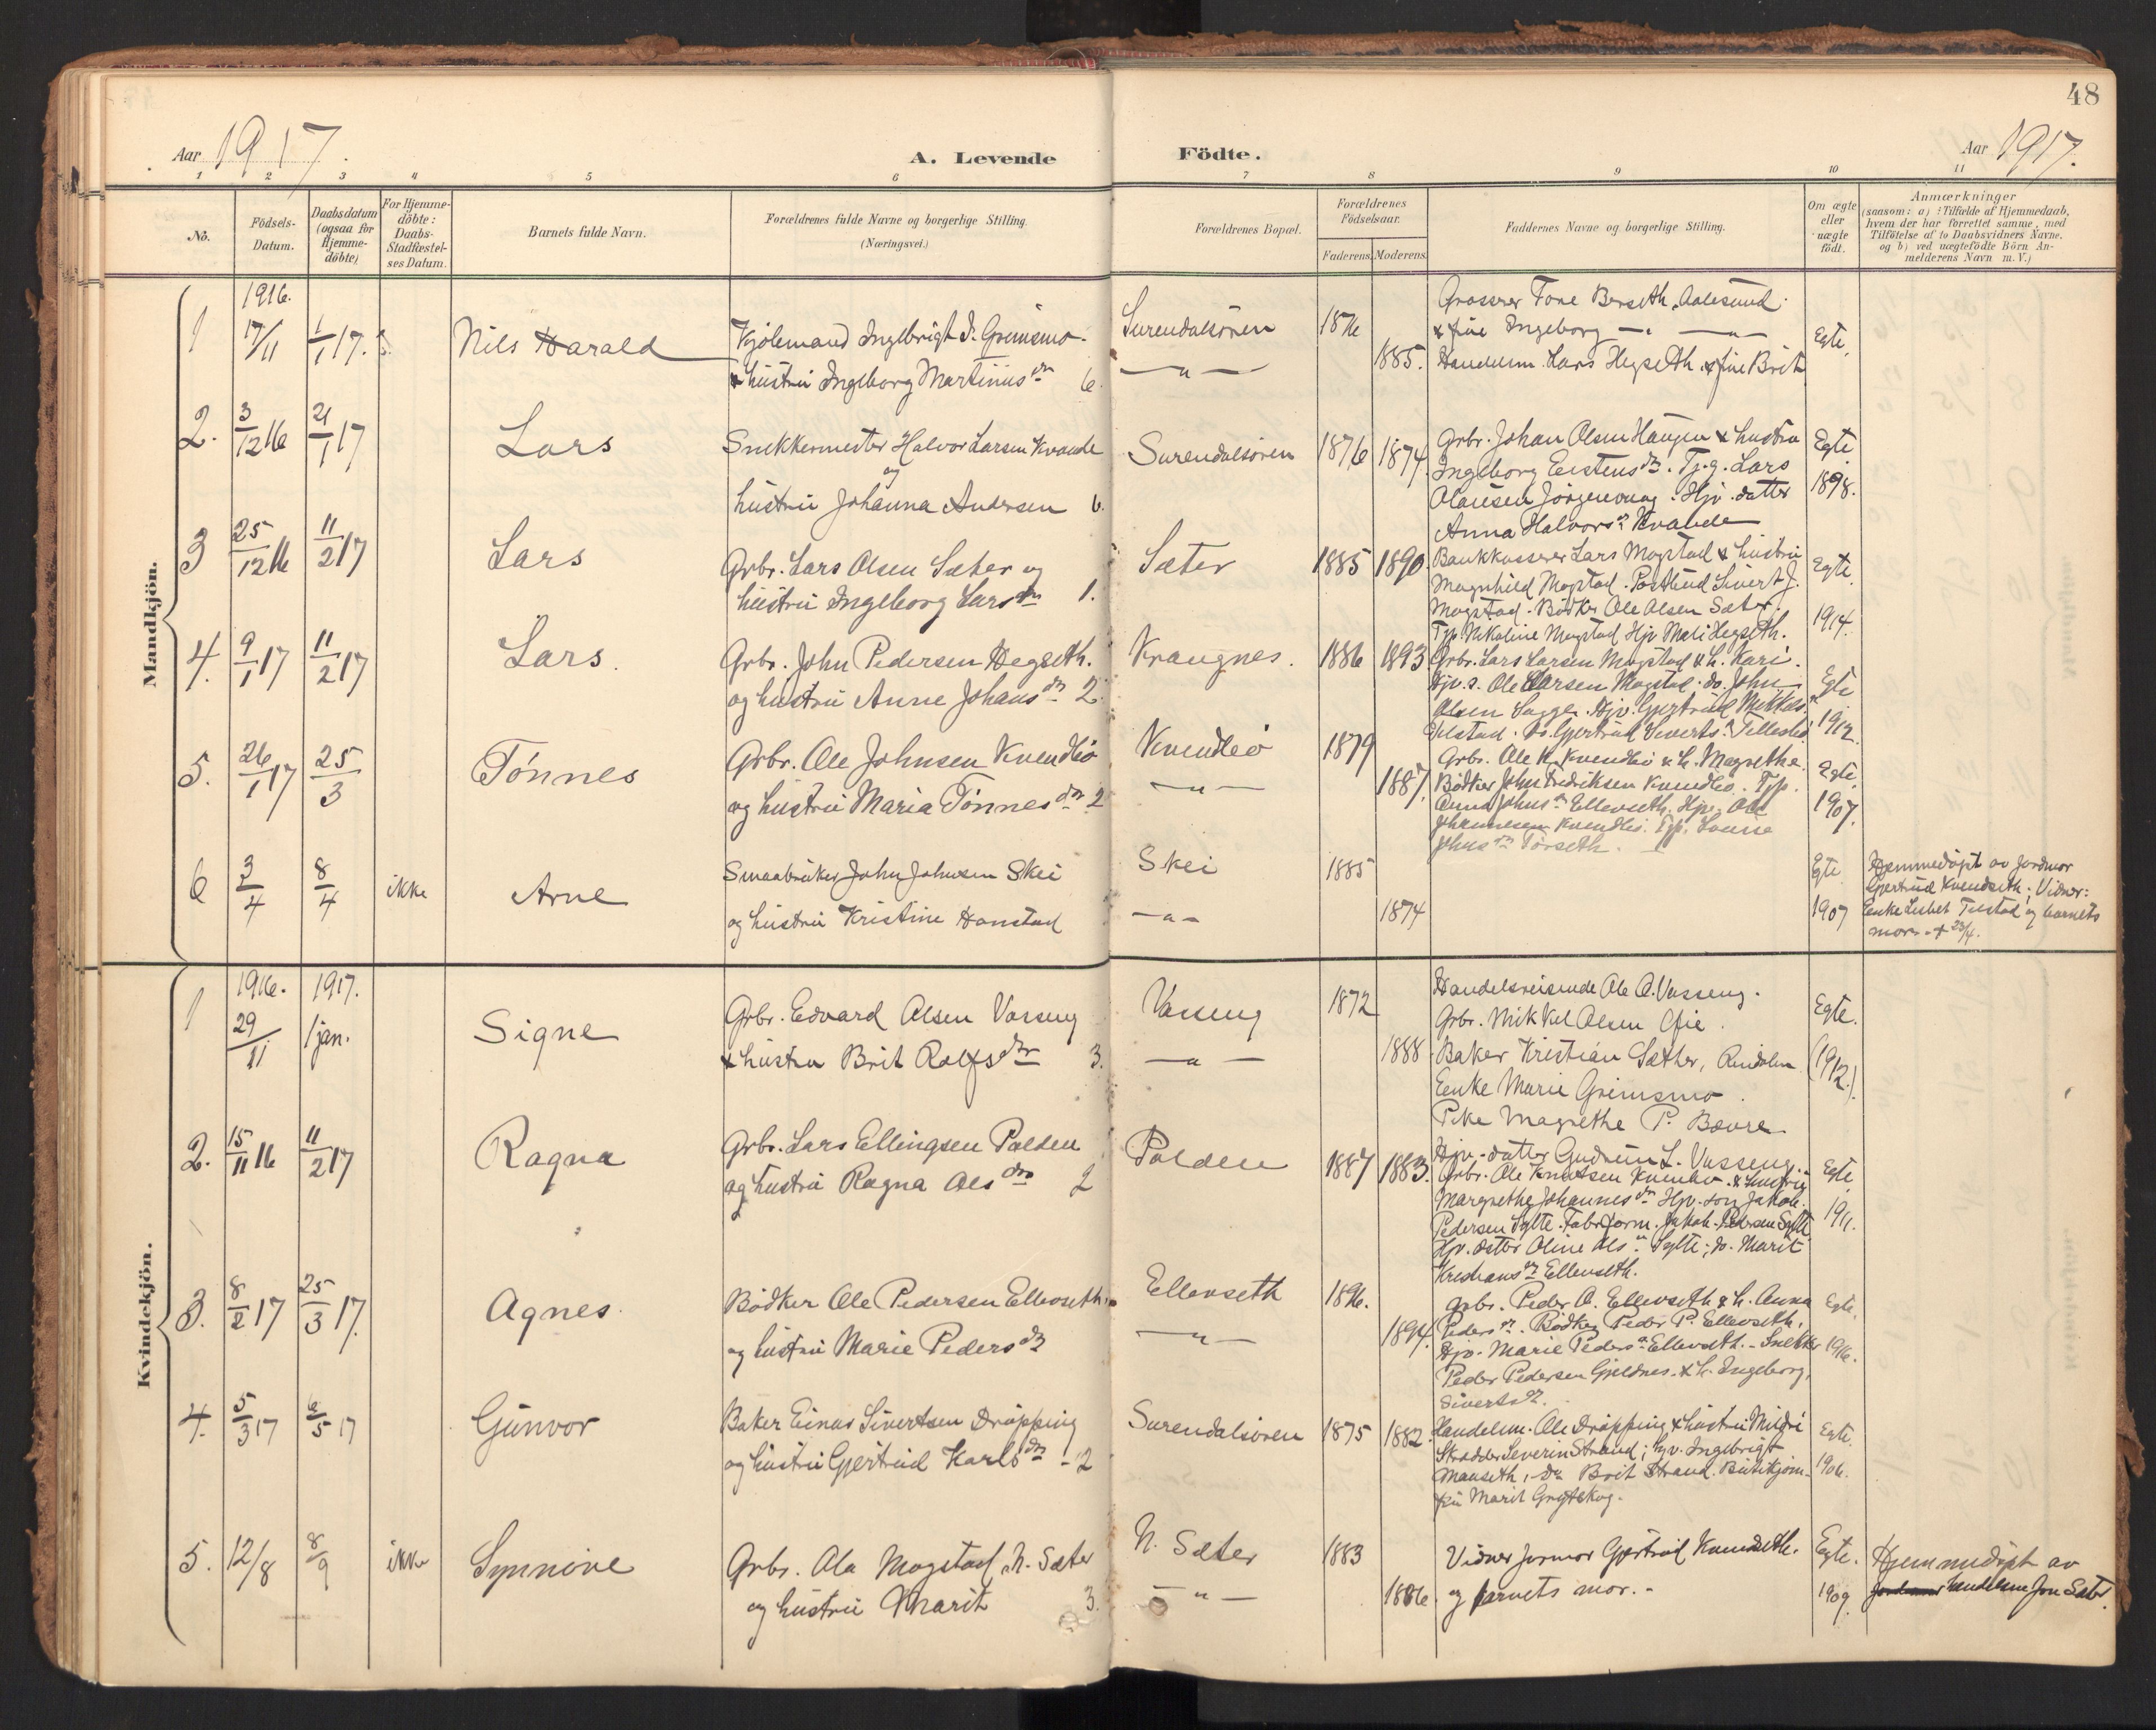 48
Aar 1917.
A. Levende
Födte.
Aar 1917.
1 2 3 4 5 6 7 8 9 10 11
No.
Födsels-
Datum.
Daabsdatum
(ogsaa for
Hjemme-
döbte)
For Hjemme-
döbte:
Daabs-
Stadfæstel-
ses Datum.
Barnets fulde Navn.
Forældrenes fulde Navne og borgerlige Stilling.
(Næringsvei.)
Forældrenes Bopæl.
Forældrenes
Födselsaar.
Faderens.
Moderens.
Faddernes Navne og borgerlige Stilling.
Om ægte
eller
uægte
födt.
Anmærkninger
(saasom: a) i Tilfælde af Hjemmedaab,
hvem der har forrettet samme, med
Tilföielse af to Daabsvidners Navne,
og b) ved uægtefödte Börn An-
melderens Navn m. V.)
Mandkjön.
1
1916.
17/11
1/1 17.
Nils Harald
Kjölemand Ingebrigt J. Grimsmo
& hustru Ingeborg Martinus dtr 6.
Surendalsören
—"—
1876
1885.
Grosserer Tore Berseth, Aalesund.
& frue Ingeborg —"—
Handelsm. Lars Hegseth & frue Brit
Egte.
2.
3/12 16
21/1 17
Lars
Snekkermester Halvor Larsen Kvande
og
hustru Johanna Andersen 6.
Surendalsören
1876
1874.
Grbr. Johan Olsen Haugen & hustru
Ingeborg Eistens dtr. Tj.g. Lars
Olausen Jörgenvaag. Hjv. datter
Anna Halvors dtr Kvande
Egte
1898.
3
25/12 16
11/2 17
Lars
Grbr. Lars Olsen Sæter og
hustru Ingeborg Lars dtr 1.
Sæter
1885
1890
Bankkasserer Lars Mogstad & hustru
Magnhild Mogstad. Postbud Sivert J.
Mogstad. Bödker Ole Olsen Sæter.
Tjp. Nikoline Mogstad Hjv Mali Hegseth.
Egte.
1914.
4.
9/1 17
11/2 17
Lars.
Grbr. John Pedersen Hegseth.
og hustru Anne Johans dtr 2.
Krangnes.
1886
1893
Grbr. Lars Larsen Mogstad & h. Kari.
Hjv. s. Ole Larsen Mogstad. do. John
Olsen Sogge. Hjv. Gjertrud Mikkels
Telstad. do. Gjertrud Siverts
Egte
1912.
5.
26/1 17
25/3
Tönnes
Grbr. Ole Johnsen Kvendbö
og hustru Maria Tönnes dtr 2
Kvendbö
—"—
1879
1887.
Grbr. Ole K. Kvendbö & h. Magrethe.
Bödker Johs Fredriksen Kvendbö. Tjp.
Anna Johns dtr Ellevseth. Hjv. Ole
Johannesen Kvendbö. Tjp. Lovise
Johs dtr Törseth.
Egte.
1907.
6
3/4
8/4
ikke
Arne
Smaabruker John Johnsen Skei
og hustru Kristine Honstad
Skei
—"—
1885
1874
Egte
1907
Hjemmedöpt av Jordmor
Gjertrud Kvendseth; Vidner:
Enke Lisbet Telstad og barnets
mor. + 23/4.
Kvindekjön.
1
1916. 1917.
29/11
1 jan.
Signe
Grbr. Edvard Olsen Vasseng
& hustru Brit Rolfs dtr 3.
Vasseng
—"—
1872
1888
Handelsreisende Ole O. Vasseng.
Grbr. Mikkel Olsen Öie.
Baker Kristian Sæther, Rindalen
Enke Marie Grimsmo.
Pike Magrethe P. Bævre
Hjv.-datter Gudrun L. Vasseng.
Egte.
(1912.)
2.
15/11 16
11/2 17
Ragna
Grbr. Lars Ellingsen Polden
og hustru Ragna Ols dtr 2
Polden
1887
1883.
Grbr. Ole Knutsen Kvenbö & hustru
Margrethe Johannes dtr Hjv. son Jakob
Pedersen Sylte. Fabr.form. Jakob Pedersen Sylte
Hjv. datter Oline Ols dtr Sylte; do. Marit
Kristians dtr Ellevseth.
Egte
1911.
3.
8/2 17
25/3 17.
Agnes.
Bödker Ole Pedersen Ellevseth.
og hustru Marie Peders dtr
Ellevseth
—"—
1896.
1894.
Grbr. Peder O. Ellevseth & h. Anna
Peders dtr. Bödker Peder P. Ellevseth.
Hjv. Marie Peders dtr Ellevseth. - Snekker
Peder Pedersen Gjeldnes & h. Ingeborg
Siverts dtr.
Egte.
1916.
4.
5/3 17
6/5 17
Gunvor
Baker Einar Sivertsen Dröpping
og hustru Gjertrud Karls dtr - 2
Surendalsören
1875
1882.
Handelsm. Ole Dröpping & hustru Mildri
Skrædder Severin Strand; Hjv. Ingebrigt
Mauseth, do Brit Strand. Butikjom-
fru Marit Grytskog.
Egte.
1906.
5.
12/8
8/9
ikke
Synnöve
Grbr. Ola Mogstad, N. Sæter
og hustru Marit 3.
N. Sæter
—"—
1883
1886.
Vidner jormor Gjertrud Kvendseth.
og barnets mor.-
Egte.
1909.
Hjemmedöpt av
handelsm Jon Sæter.